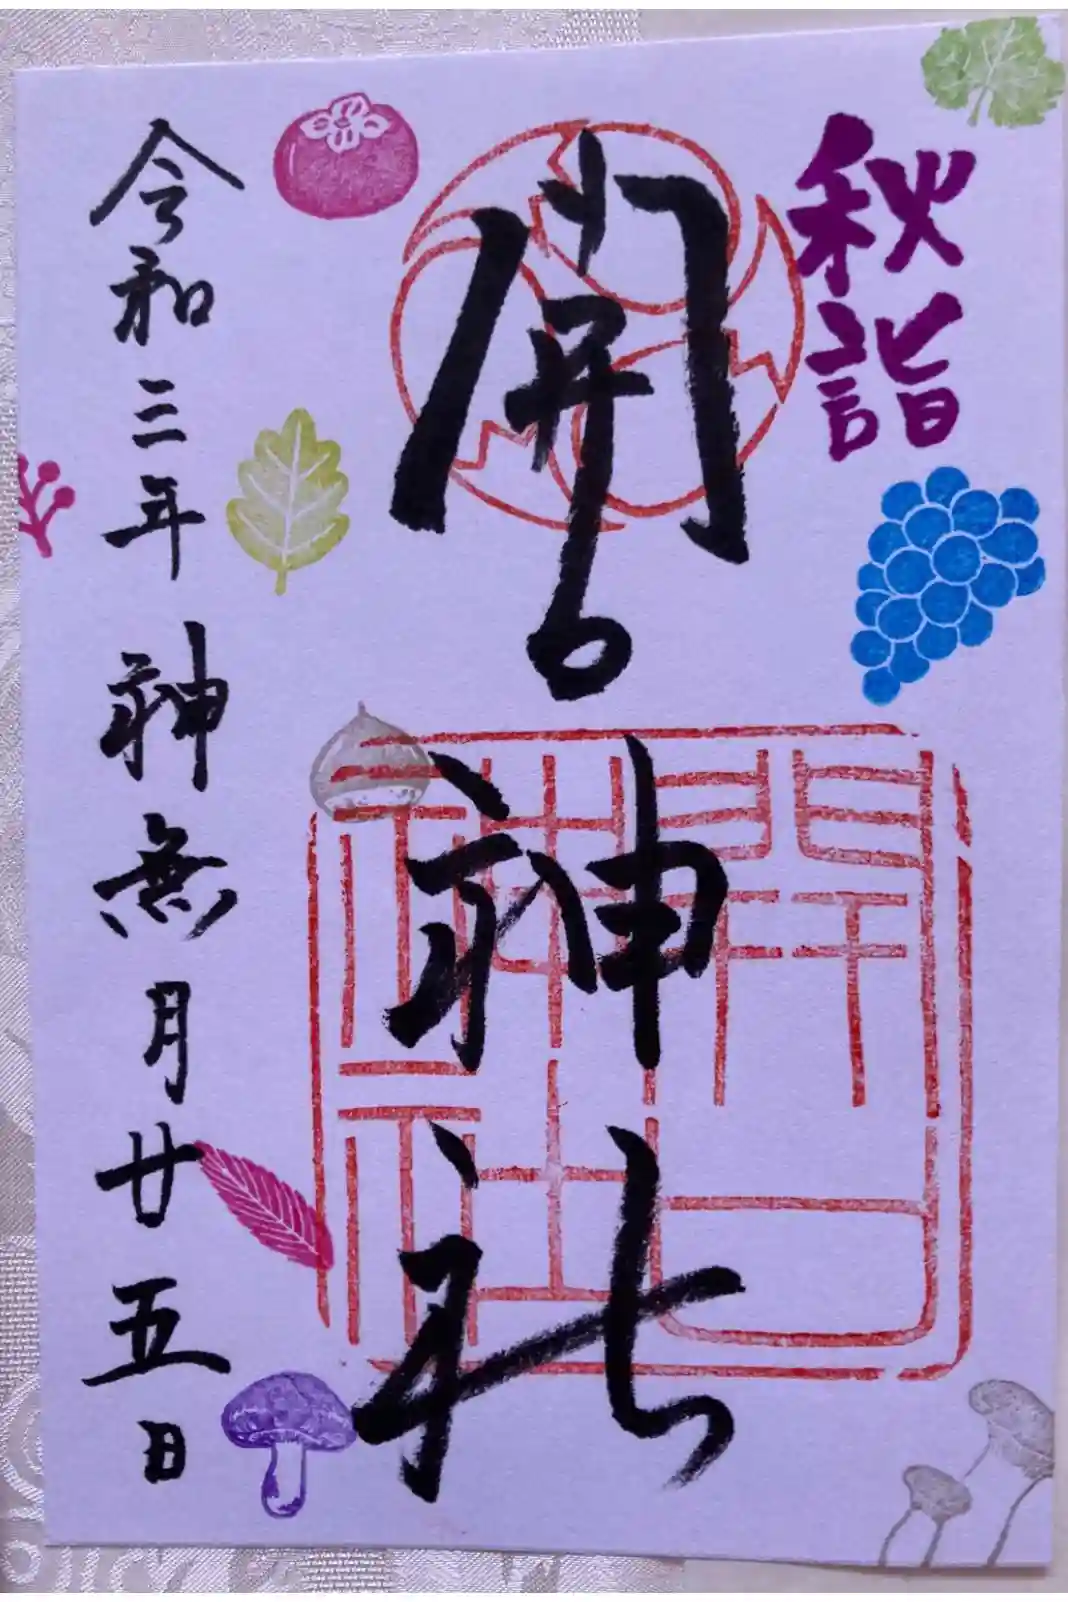 秋詣
開口神社
開口神社
令和三年神無月廿五日